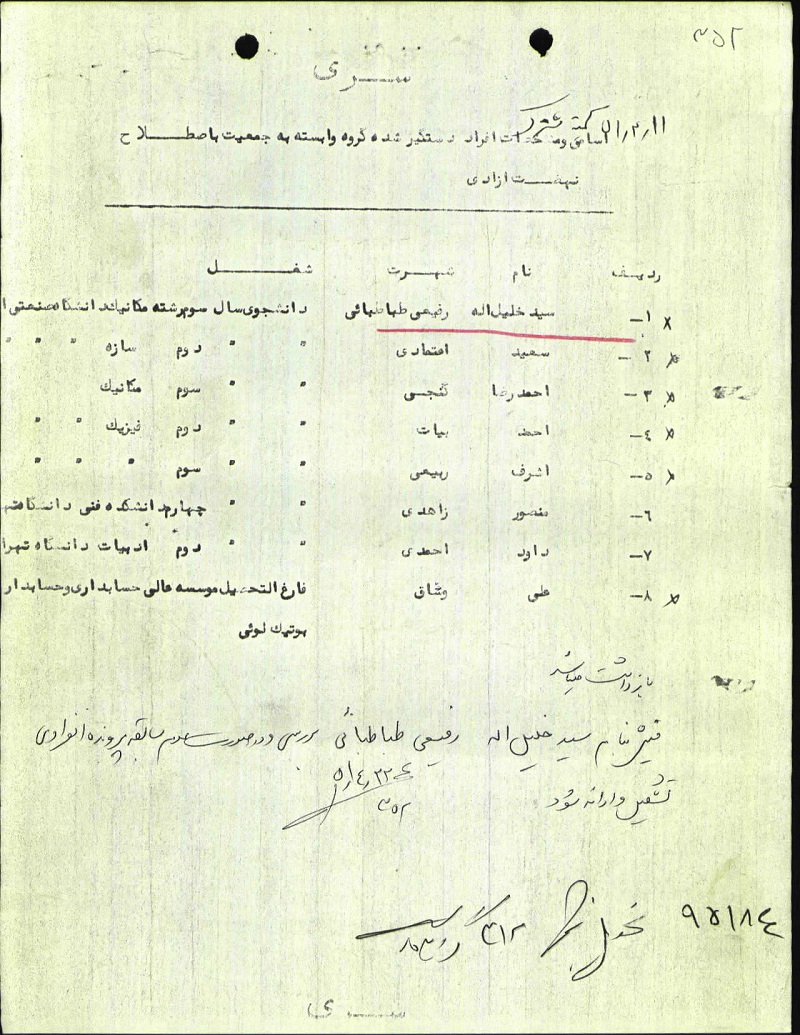 ۳۵۲
سری
۵۱ر۳ر۱۱
اسامی و مشخصات افراد دستگیر شده گروه وابسته به جمعیت باصطلاح
نهضت ازادی
ردیف نام شهرت شغل
x ۱- سید خلیل‌اله رفیعی طباطبائی دانشجوی سال سوم رشته مکانیک دانشگاه صنعتی
x ۲- سعید اعتمادی " " دوم سازه " " "
x ۳- احمدرضا گنجی " " سوم مکانیک
x ۴- احمد بیات " " دوم فیزیک " "
x ۵- اشرف ربیعی " " سوم " " "
۶- منصور زاهدی " " چهارم دانشکده فنی دانشگاه
۷- داود احمدی " " دوم ادبیات دانشگاه
x ۸- علی وثاق فارغ التحصیل موسسه عالی حسابداری و حسابدار
بوتیک لوئی
بازداشت میباشد
فیش بنام سید خلیل اله رفیعی طباطبائی بررسی و در صورت عدم سابقه پرونده انفرادی
تشکیل و ارائه شود
۳۵۲
۹۵۱۸۴
۳۱۲
سری